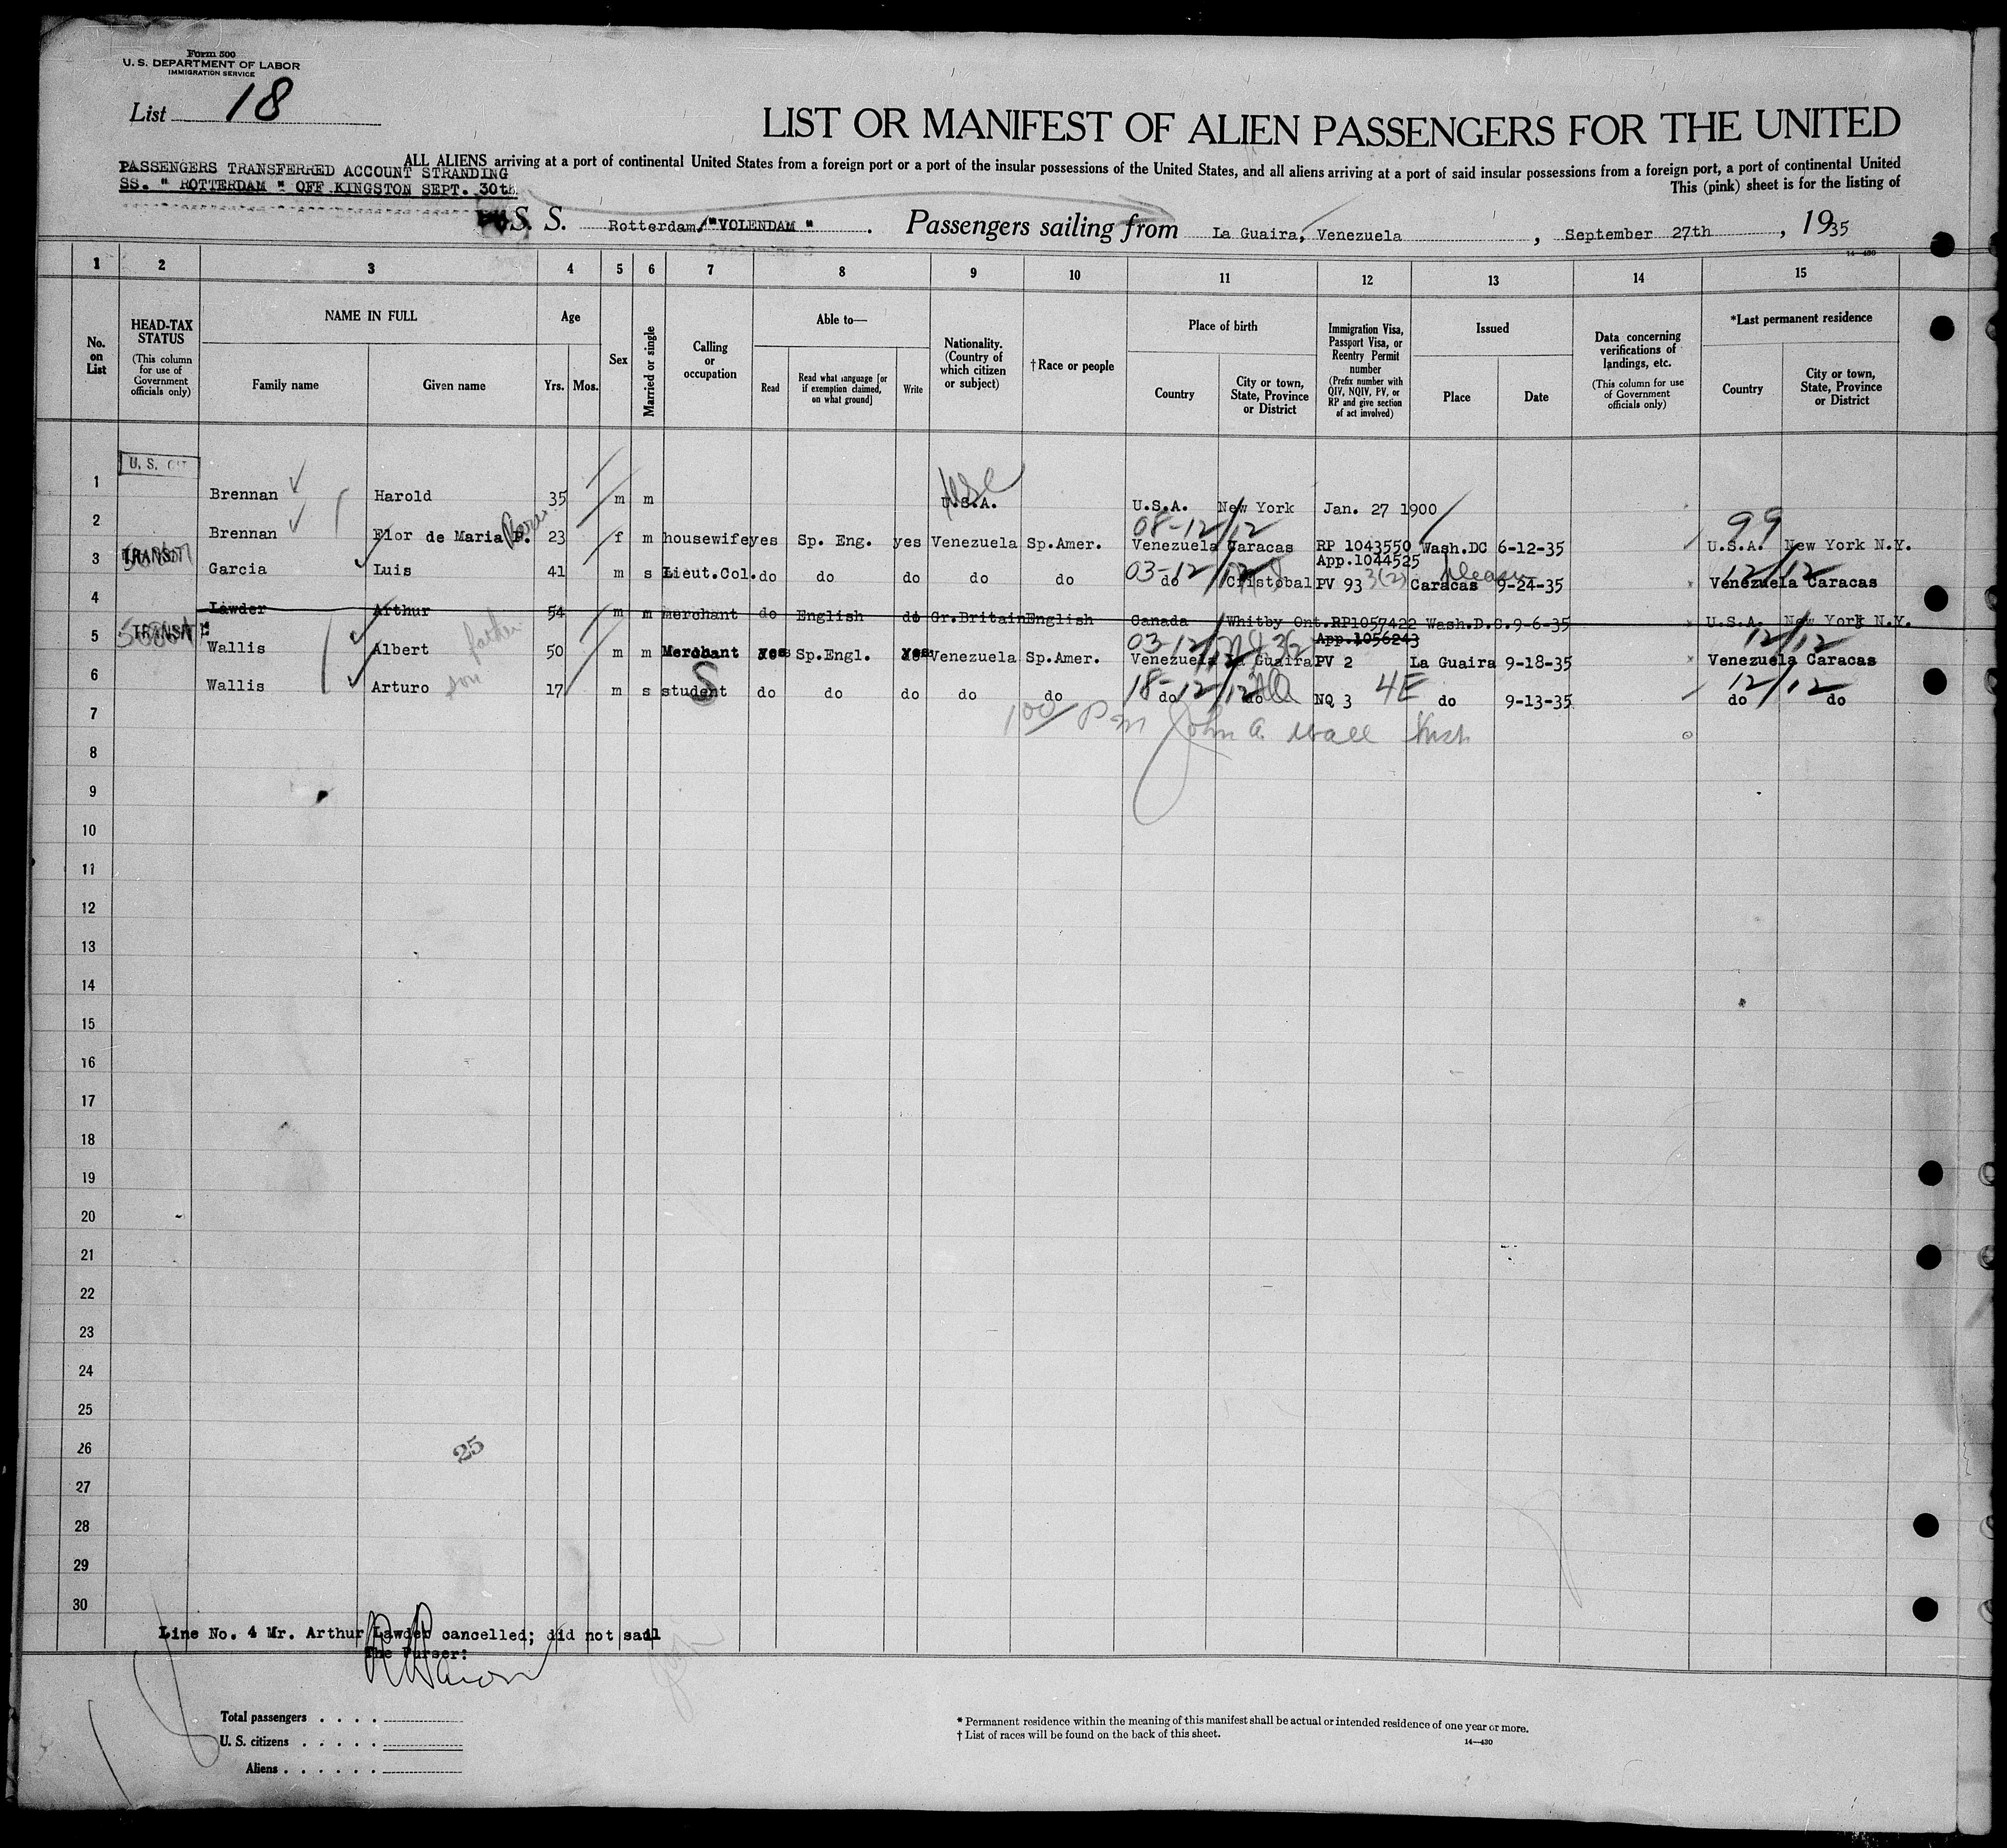 Form 500
U. S. DEPARTMENT OF LABOR
IMMIGRATION SERVICE
List 18
LIST OR MANIFEST OF ALIEN PASSENGERS FOR THE UNITED
ALL ALIENS arriving at a port of continental United States from a foreign port or a port of the insular possessions of the United States, and all aliens arriving at a port of said insular possessions from a foreign port, a port of continental United
PASSENGERS TRANSFERRED ACCOUNT STRANDING
SS. " ROTTERDAM " OFF KINGSTON SEPT. 30th
This (pink) sheet is for the listing of
S. S. Rotterdam/"VOLENDAM" . Passengers sailing from La Guaira, Venezuela , September 27th , 1935
14-430
1 2 3 4 5 6 7 8 9 10 11 12 13 14 15
No. on List
HEAD-TAX STATUS
(This column for use of Government officials only)
NAME IN FULL
Family name
Given name
Age
Yrs. Mos.
Sex
Married or single
Calling or occupation
Able to—
Read
Read what language [or if exemption claimed, on what ground]
Write
Nationality. (Country of which citizen or subject)
† Race or people
Place of birth
Country
City or town, State, Province or District
Immigration Visa, Passport Visa, or Reentry Permit number
(Prefix number with QIV, NQIV, PV, or RP and give section of act involved)
Issued
Place
Date
Data concerning verifications of landings, etc.
(This column for use of Government officials only)
*Last permanent residence
Country
City or town, State, Province or District
U. S. CIT
1 Brennan Harold 35 m m U.S.A. U.S.A. New York Jan. 27 1900
08-12/12 99
2 Brennan Flor de Maria P. 23 f m housewife yes Sp. Eng. yes Venezuela Sp.Amer. Venezuela Caracas RP 1043550 Wash.DC 6-12-35 U.S.A. New York N.Y.
App.1044525
TRANSIT
03-12/12 12/12
3 Garcia Luis 41 m s Lieut.Col. do do do do do do Cristobal PV 93 3(2) Caracas 9-24-35 Venezuela Caracas
4 Lawder Arthur 54 m m merchant do English do Gr.Britain English Canada Whitby Ont. RP1057422 Wash.D.C. 9-6-35 U.S.A. New York N.Y.
App.1056243
TRANSIT
03-12/12 3(2) 12/12
5 Wallis Albert father 50 m m Merchant yes Sp.Engl. yes Venezuela Sp.Amer. Venezuela La Guaira PV 2 La Guaira 9-18-35 Venezuela Caracas
18-12/12 4E 12/12
6 Wallis Arturo son 17 m s student S do do do do do do do NQ 3 do 9-13-35 do do
7
8
9
10
11
12
13
14
15
16
17
18
19
20
21
22
23
24
25
26
25
27
28
29
30
Line No. 4 Mr. Arthur Lawder cancelled; did not sail
The Purser:
Total passengers . . . .
U. S. citizens . . . . .
Aliens . . . . . .
* Permanent residence within the meaning of this manifest shall be actual or intended residence of one year or more.
† List of races will be found on the back of this sheet.
14-430